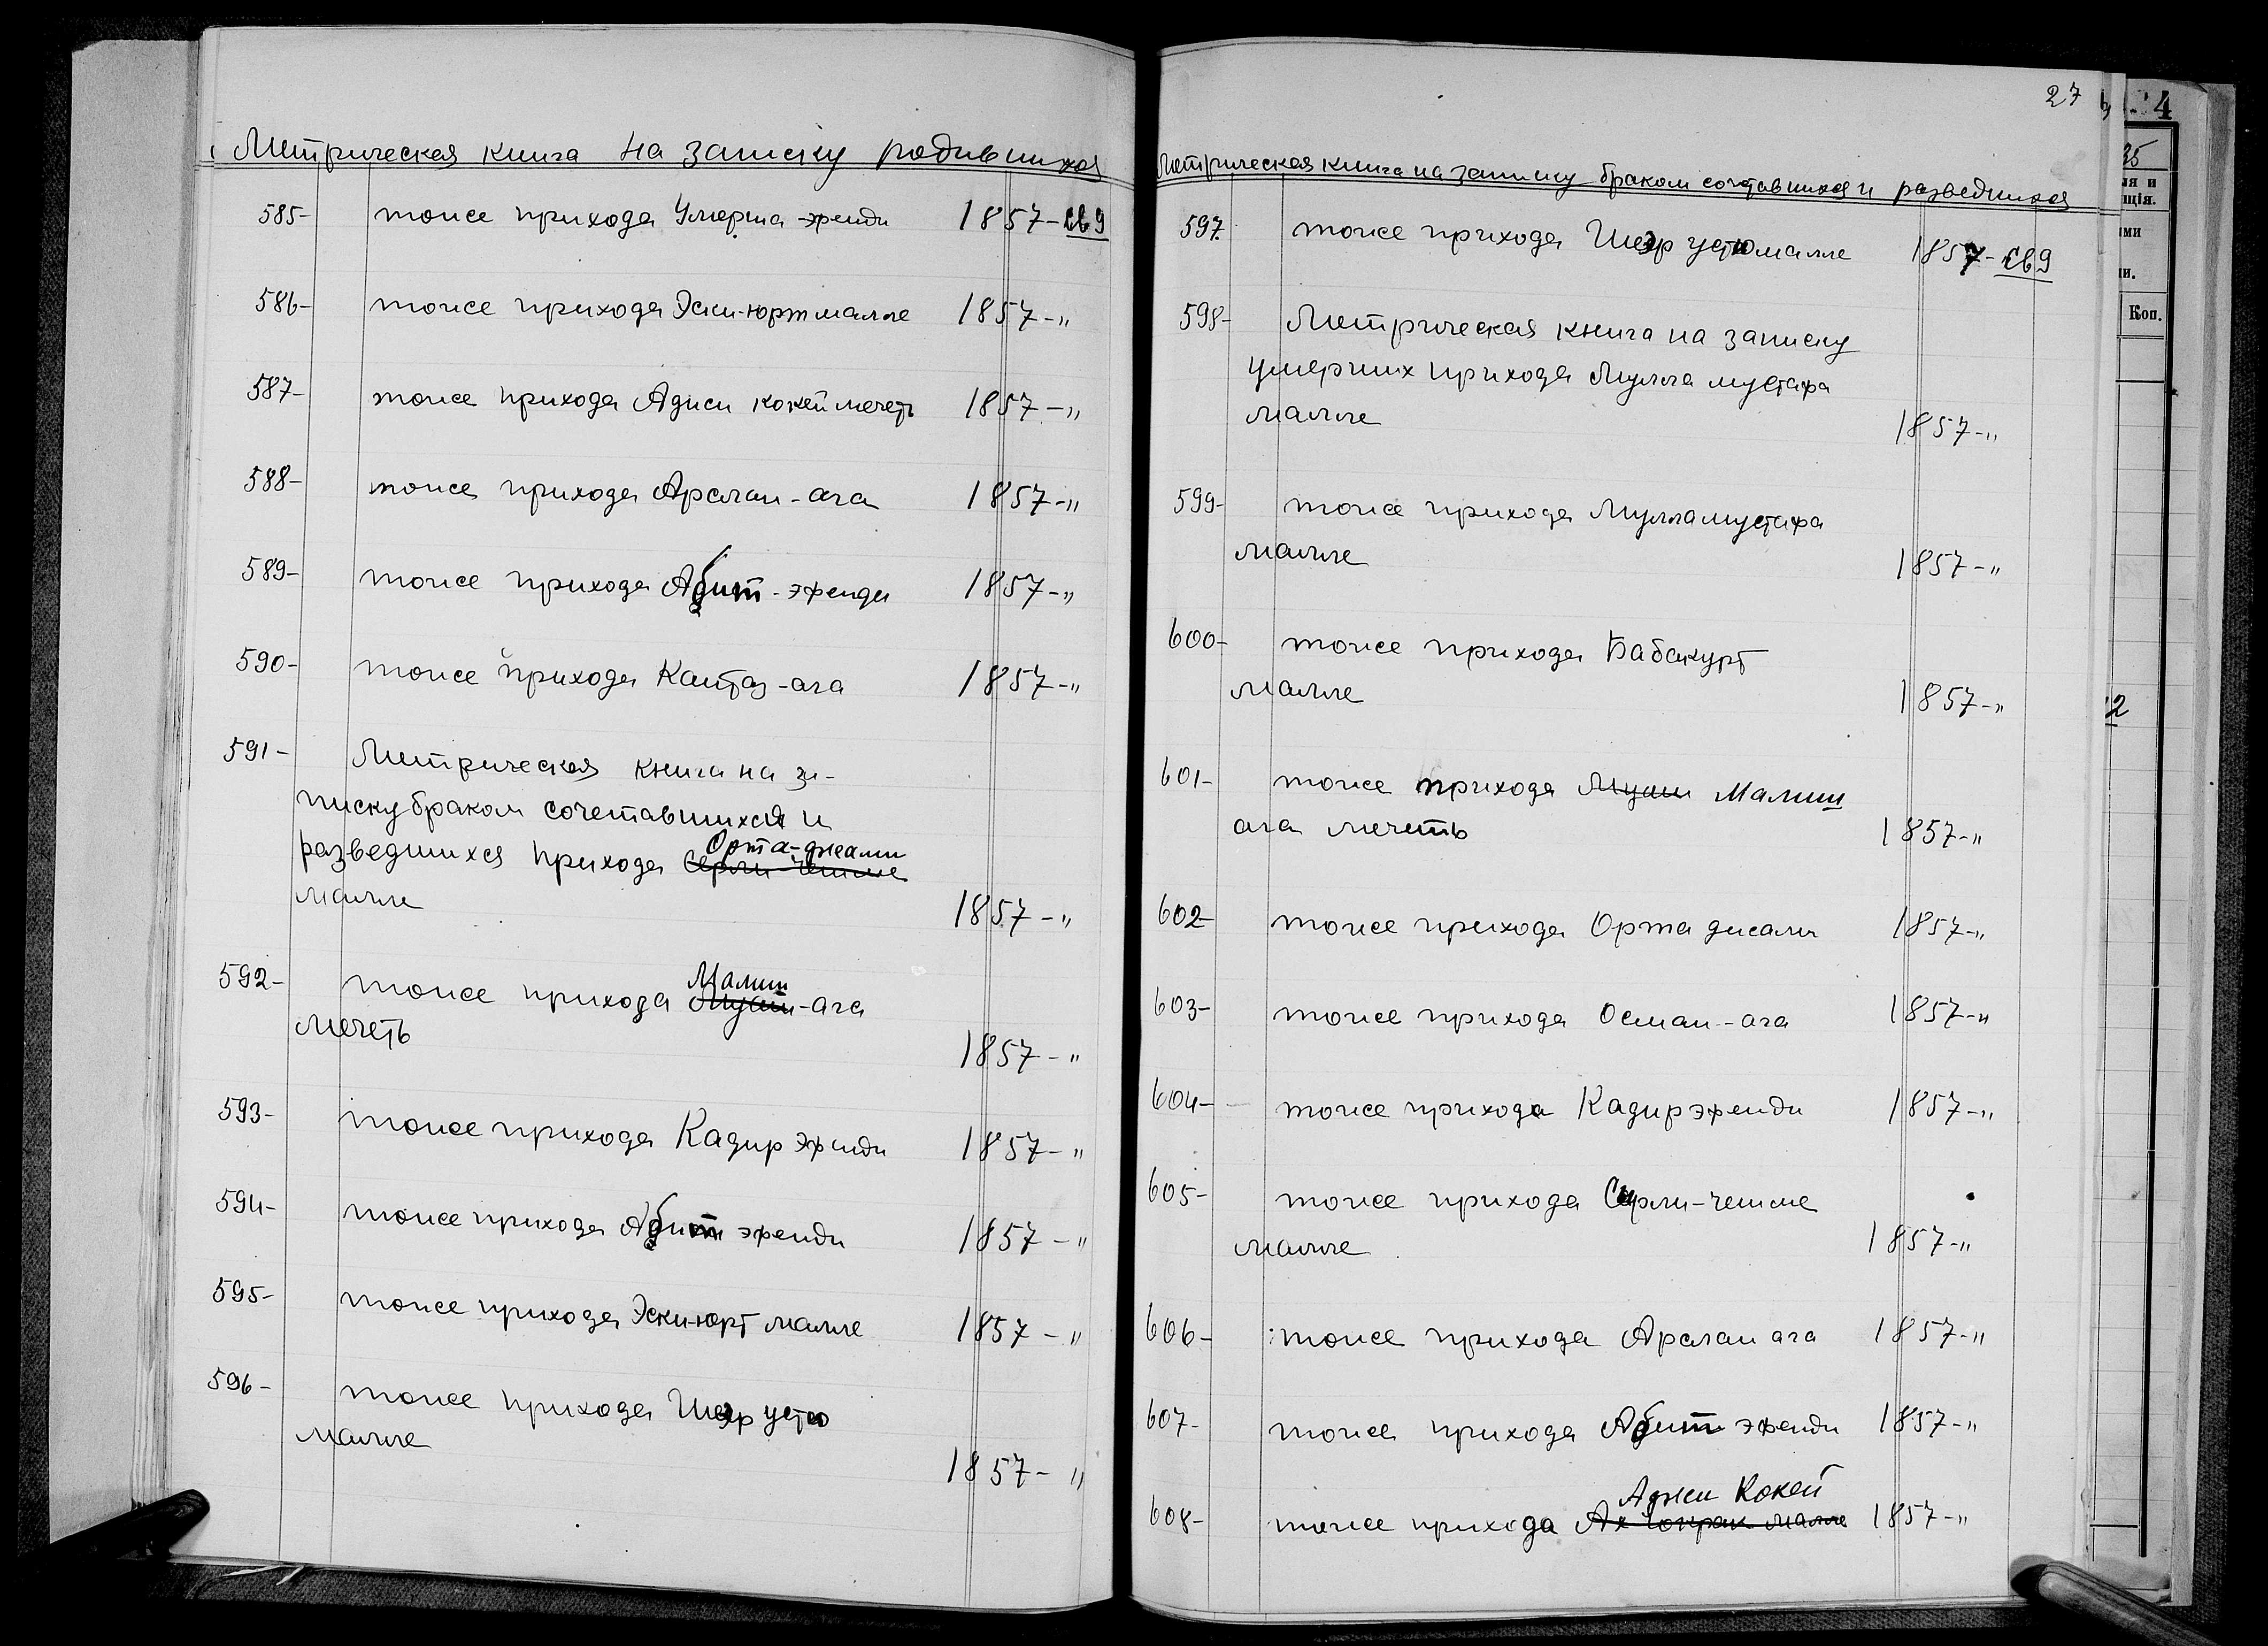 Метрическая книга на записку родившихся
585- тоже прихода Умерша-эфенди 1857-св9
586- тоже прихода Эски-юрт малле 1857-"
587- тоже прихода Аджи кокей мечеть 1857-"
588- тоже прихода Арслан-ага 1857-"
589- тоже прихода Абит-эфенди 1857-"
590- тоже прихода Кантаз-ага 1857-"
591- Метрическая книга на за-
писку браком сочетавшихся и
Орта-джами
разведшихся прихода Сырли-чешме
малле 1857-"
Малиш
592- тоже прихода -ага
мечеть 1857-"
593- тоже прихода Кадир эфенди 1857-"
594- тоже прихода Абит эфенди 1857-"
595- тоже прихода Эски-юрт малле 1857-"
596- тоже прихода Шеэр устю
малле 1857-"
27
Метрическая книга на записку браком сочетавшихся и разведшихся
597. тоже прихода Шеэр устю малле 1857-св9
598- Метрическая книга на записку
умерших прихода Мулла мустафа
малле 1857-"
599- тоже прихода Мулламустафа
малле 1857-"
600- тоже прихода Бабакурт
малле 1857-"
601- тоже прихода Малиш
ага мечеть 1857-"
602- тоже прихода Орта джами 1857-"
603- тоже прихода Осман-ага 1857-"
604- тоже прихода Кадир эфенди 1857-"
605- тоже прихода Сырли-чешме
малле 1857-"
606- тоже прихода Арслан ага 1857-"
607- тоже прихода Абит эфенди 1857-"
Аджи Кокей
608- тоже прихода Ах Чокрак малле 1857-"
4
35
ія и
ція.
ми
и.
Коп.
2